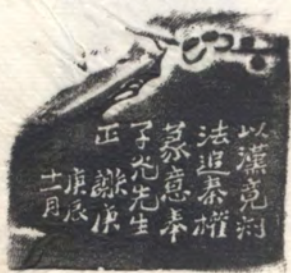 以漢竟約
法追秦權
篆意奉
子光先生
正 謝庚
庚辰
十一月